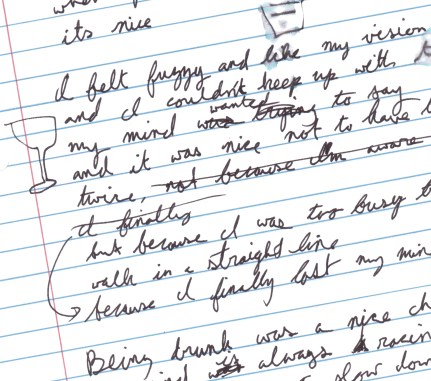 its nice
I felt fuzzy and like my vision
and I couldn't keep up with
my mind was trying wanted to say
and it was nice not to have
twice, not because I'm aware
it finally
but because I was too busy
walk in a straight line
because I finally lost my min
Being drunk was a nice ch
always racin
slow dow